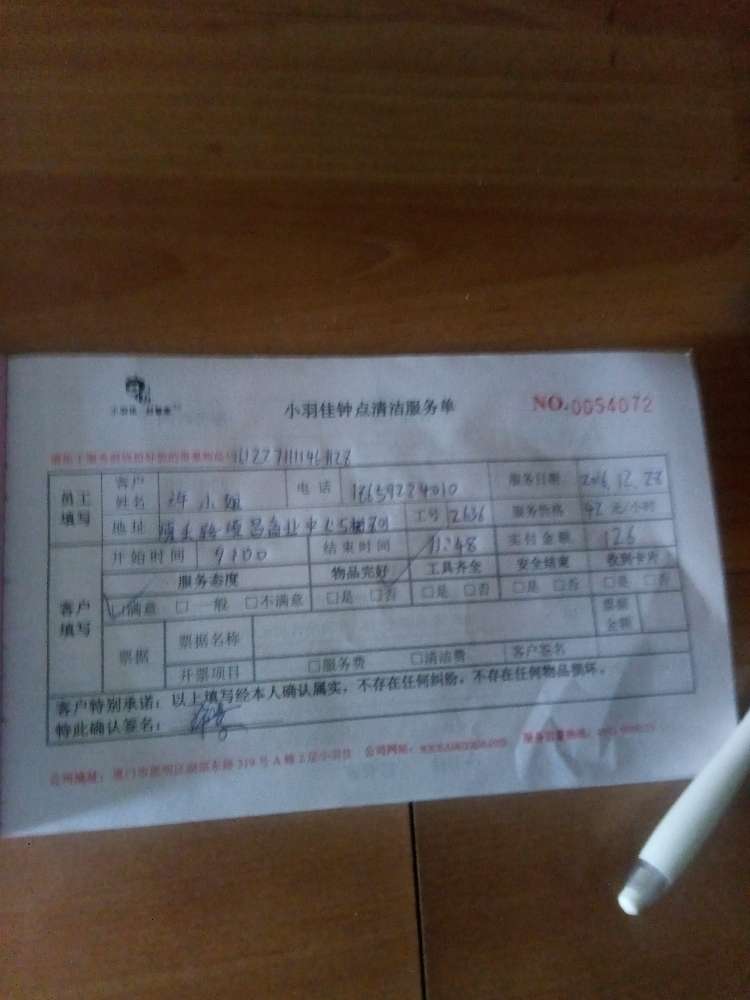 小羽佳钟点清洁服务单
NO.0054072
员工填写 客户姓名 许小姐 电话 18659224010 服务日期 2016.12.28
地址 工号 2636 服务价格 42 元/小时
开始时间 9:00 结束时间 11:48 实付金额 126
客户填写 服务态度 物品完好 工具齐全 安全结束 收到卡片
□满意 □一般 □不满意 □是 □否 □是 □否 □是 □否 □是 □否
票据 票据名称 票据金额
开票项目 □服务费 □清洁费 客户签名
客户特别承诺：以上填写经本人确认属实，不存在任何纠纷，不存在任何物品损坏。
特此确认签名：
公司地址：厦门市思明区湖滨东路319号A幢2层小羽佳 公司网站：